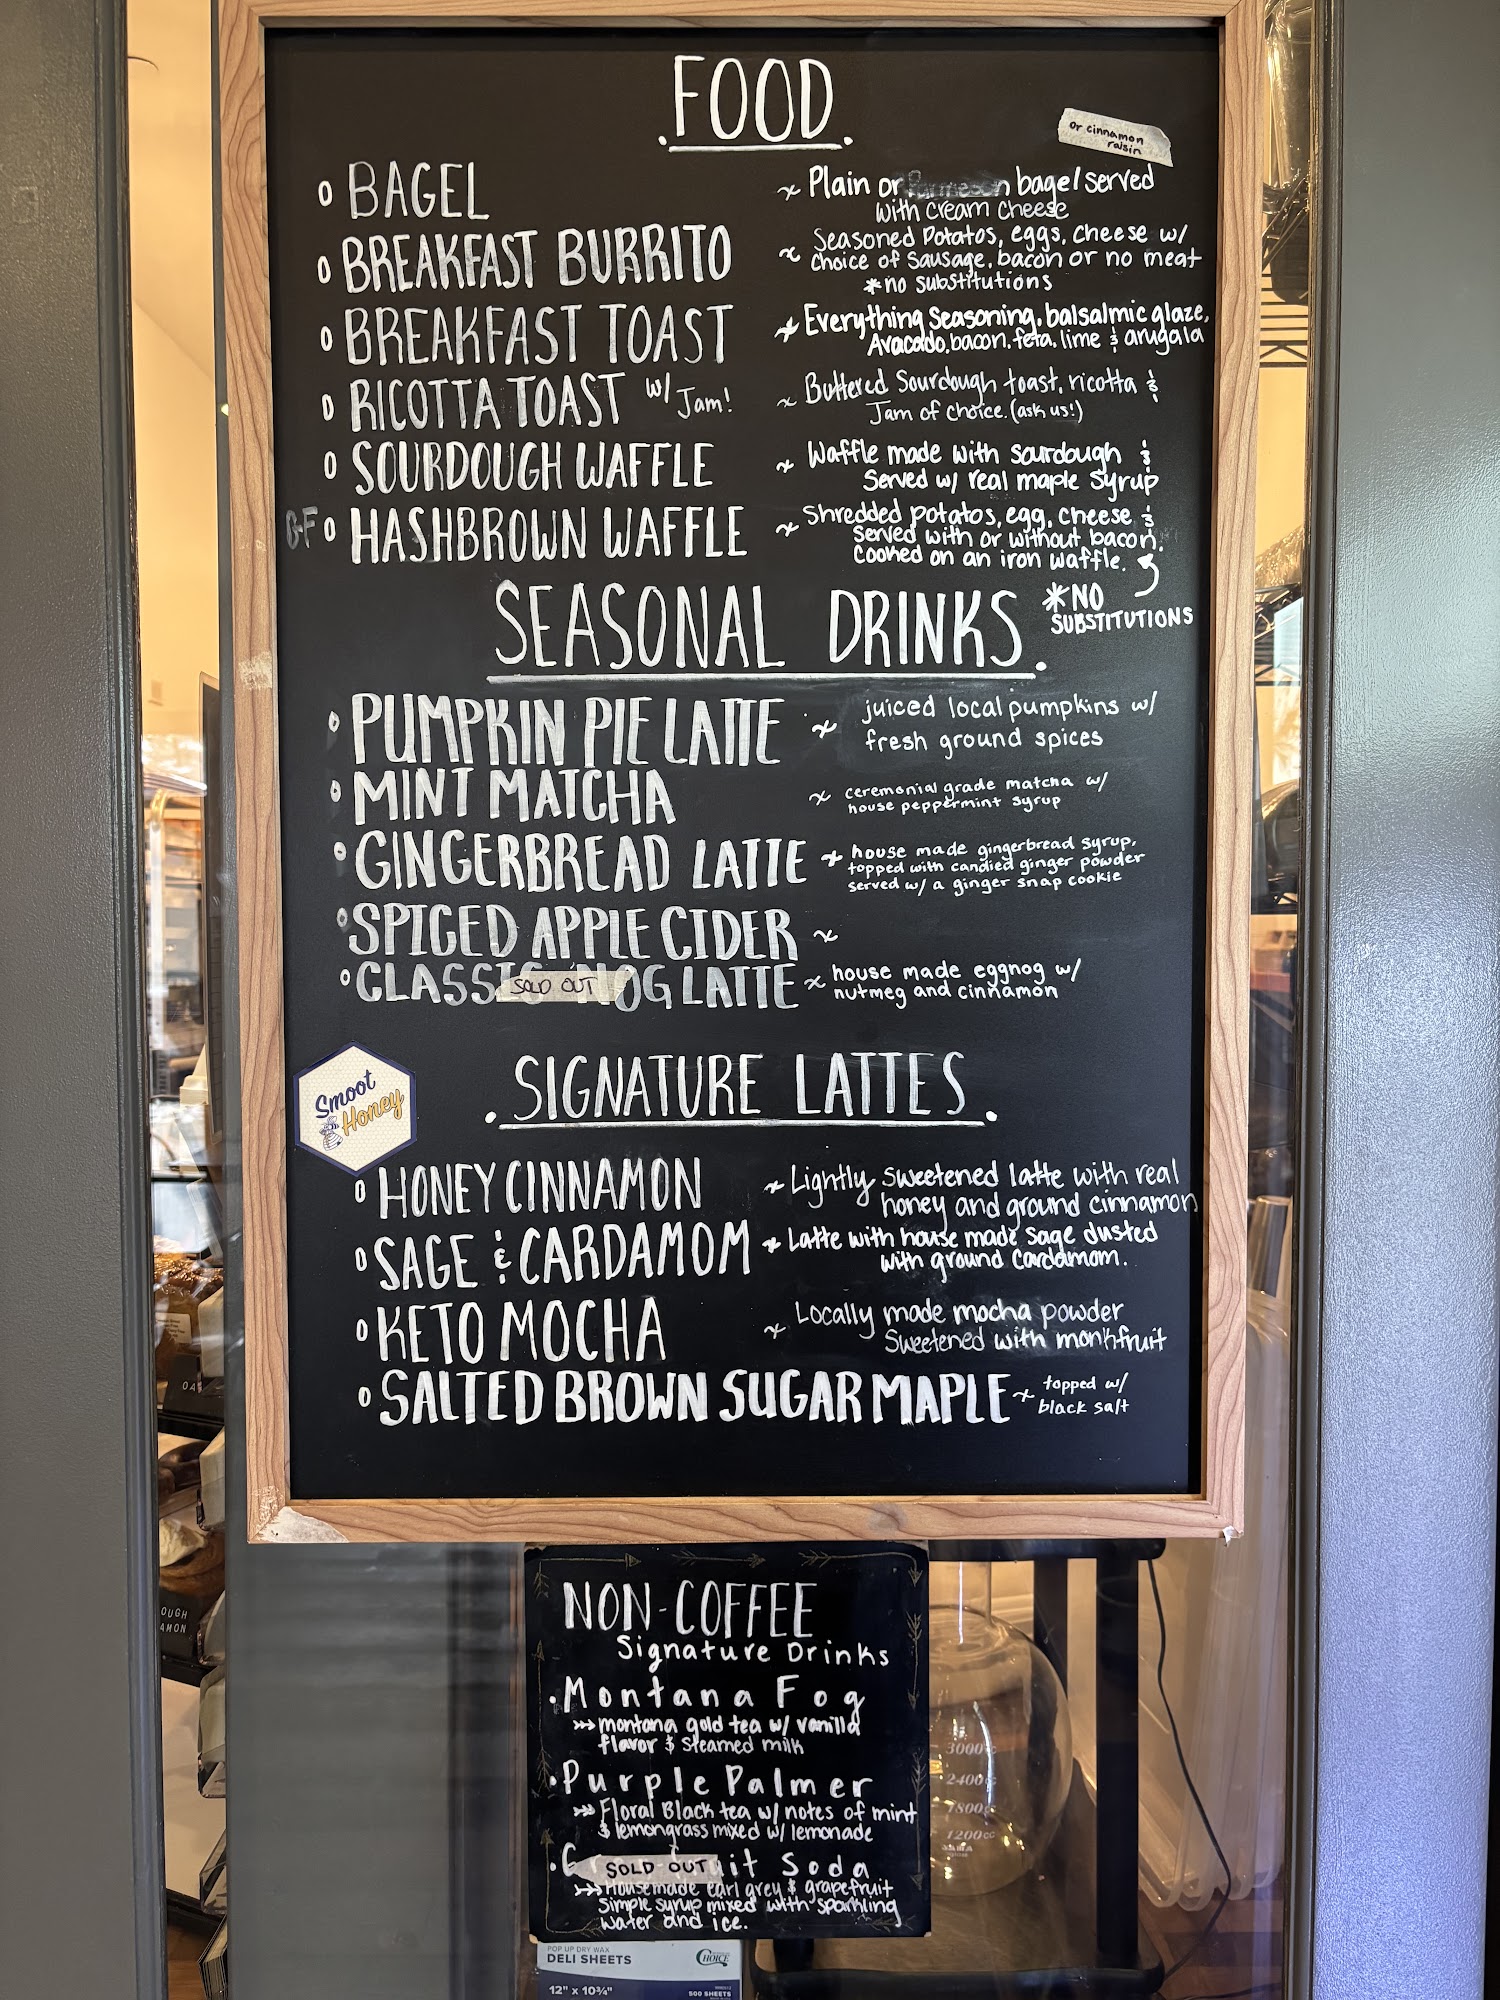 FOOD
or cinnamon
raisin
BAGEL
Plain or Parmesan bagel served
with cream cheese
BREAKFAST BURRITO
Seasoned Potatos, eggs, cheese w/
choice of sausage, bacon or no meat
*no substitutions
BREAKFAST TOAST
Everything seasoning, balsalmic glaze,
Avacado, bacon, feta, lime & arugala
RICOTTA TOAST w/ Jam!
Buttered Sourdough toast, ricotta &
Jam of choice. (ask us!)
SOURDOUGH WAFFLE
Waffle made with sourdough &
Served w/ real maple syrup
GF HASHBROWN WAFFLE
Shredded potatos, egg, cheese &
Served with or without bacon.
Cooked on an iron waffle.
*NO
SUBSTITUTIONS
SEASONAL DRINKS
PUMPKIN PIE LATTE
juiced local pumpkins w/
fresh ground spices
MINT MATCHA
ceremonial grade matcha w/
house peppermint syrup
GINGERBREAD LATTE
house made gingerbread syrup,
topped with candied ginger powder
served w/ a ginger snap cookie
SPICED APPLE CIDER
CLASSIC NOG LATTE
SOLD OUT
house made eggnog w/
nutmeg and cinnamon
Smoot
Honey
SIGNATURE LATTES
HONEY CINNAMON
Lightly sweetened latte with real
honey and ground cinnamon
SAGE & CARDAMOM
Latte with house made sage dusted
with ground cardamom.
KETO MOCHA
Locally made mocha powder
Sweetened with monkfruit
SALTED BROWN SUGAR MAPLE
topped w/
black salt
NON-COFFEE
Signature Drinks
Montana Fog
montana gold tea w/ vanilla
flavor & steamed milk
Purple Palmer
Floral Black tea w/ notes of mint
& lemongrass mixed w/ lemonade
SOLD OUT
Soda
Housemade earl grey & grapefruit
Simple syrup mixed with sparkling
water and ice.
3000
2400
1800
1200cc
POP UP DRY WAX
DELI SHEETS
CHOICE
12" x 10¾"
500 SHEETS
OUGH
AMON